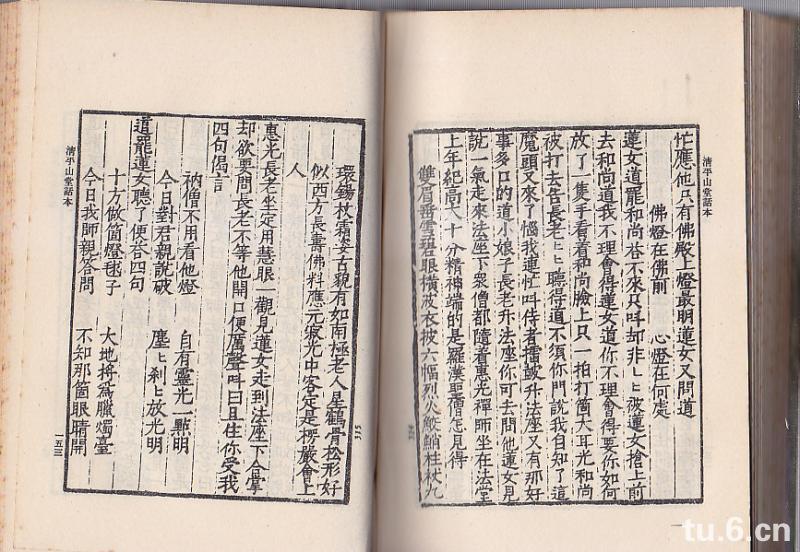 清平山堂話本
忙應他只有佛殿上燈最明蓮女又問道
佛燈在佛前　心燈在何處
蓮女道罷和尚荅不來只叫却非〻被蓮女搶上前
去和尚道我不理會得蓮女道你不理會得要你如何
放了一隻手看着和尚臉上只一拍打箇大耳光和尚
被打去告長老〻聽得道不須你們說我自知了這
魔頭又來了惱我連忙叫侍者擂鼓升法座又有那好
事多口的道小娘子長老升法座你可去問他蓮女見
說一氣走來法座下衆僧都隨着惠光禪師坐在法堂
上年紀高大十分精神端的是羅漢聖僧怎見得
雙眉垂雪碧眼橫波衣披六幅烈火鮫綃柱杖九
環錫杖霜姿古貌有如南極老人星鶴骨松形好
似西方長壽佛料應元寂光中客定是楞嚴會上
人
惠光長老坐定用慧眼一觀見蓮女走到法座下合掌
却欲要問長老不等他開口便厲聲叫曰且住你受我
四句偈言
衲僧不用看他燈　自有靈光一點明
今日對君親說破　塵〻刹〻放光明
道罷蓮女聽了便荅四句
十方做箇燈毬子　大地將爲臘燭臺
今日我師親荅問　不知那箇眼睛開
清平山堂話本
一五三
315
tu.6.cn